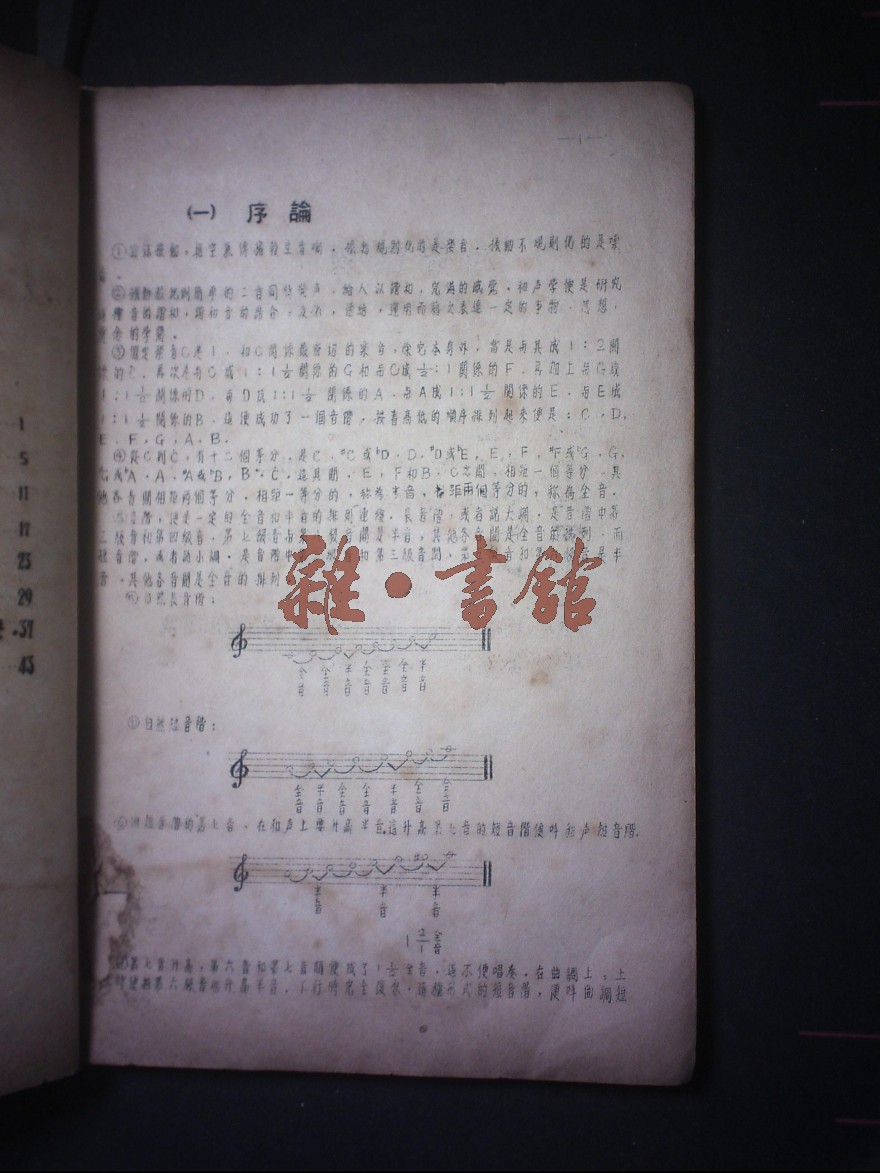 —1—
(一) 序論
①振動,經空氣傳播發生音响.振動規則化的是樂音.振動不規則化的是噪
音.
②振動能規則簡單的二音同時發声,給人以諧和,完滿的感覺.和声学便是研究
樂音的諧和,諧和音的結合,及,連結,運用而藉之表達一定的事物.思想.
的学問.
③假定樂音C是1.和C關係最密切的樂音,除它本身外.當是与其成1:2關
係的C.再次是与C成1:1½關係的G和与C成½:1關係的F.再加上与G成
1:1½關係的D.与D成1:1½關係的A.与A成1:1½關係的E.与E成
1:1½關係的B.這便成功了一個音階.按音高低的順序排列起來便是:C,D,
E,F,G,A,B.
④從C到C,有十二個等分,是C,#C或bD,D,#D或bE,E,F,#F或bG,G,
#G或bA,A,#A或bB,B,C.這其間,E,F和B,C之間,相距一個等分,其
他各音間相距兩個等分.相距一等分的,称為半音,相距兩個等分的,称為全音.
音階,便是一定的全音和半音的排列連續.長音階,或者說大調,是音階中第
三級音和第四級音,第七級音与第八級音間是半音,其他各音間是全音的排列.而
短音階,或者說小調,是音階中第二級音和第三級音間,第五級音和第六級音是半
音,其他各音間是全音的排列
自然長音階:
全音 全音 半音 全音 全音 全音 半音
自然短音階:
全音 半音 全音 全音 半音 全音 全音
短音階的第七音,在和声上要升高半音.這升高第七音的短音階便叫和声短音階.
半音 半音 半音
1½全音
第七音升高,第六音和第七音間便成了1½全音.這不便唱奏.在曲調上,上
行時便將第六級音也升高半音,下行時完全復原.這種形式的短音階,便叫曲調短
雜·書館
1
5
11
17
25
29
.37
45